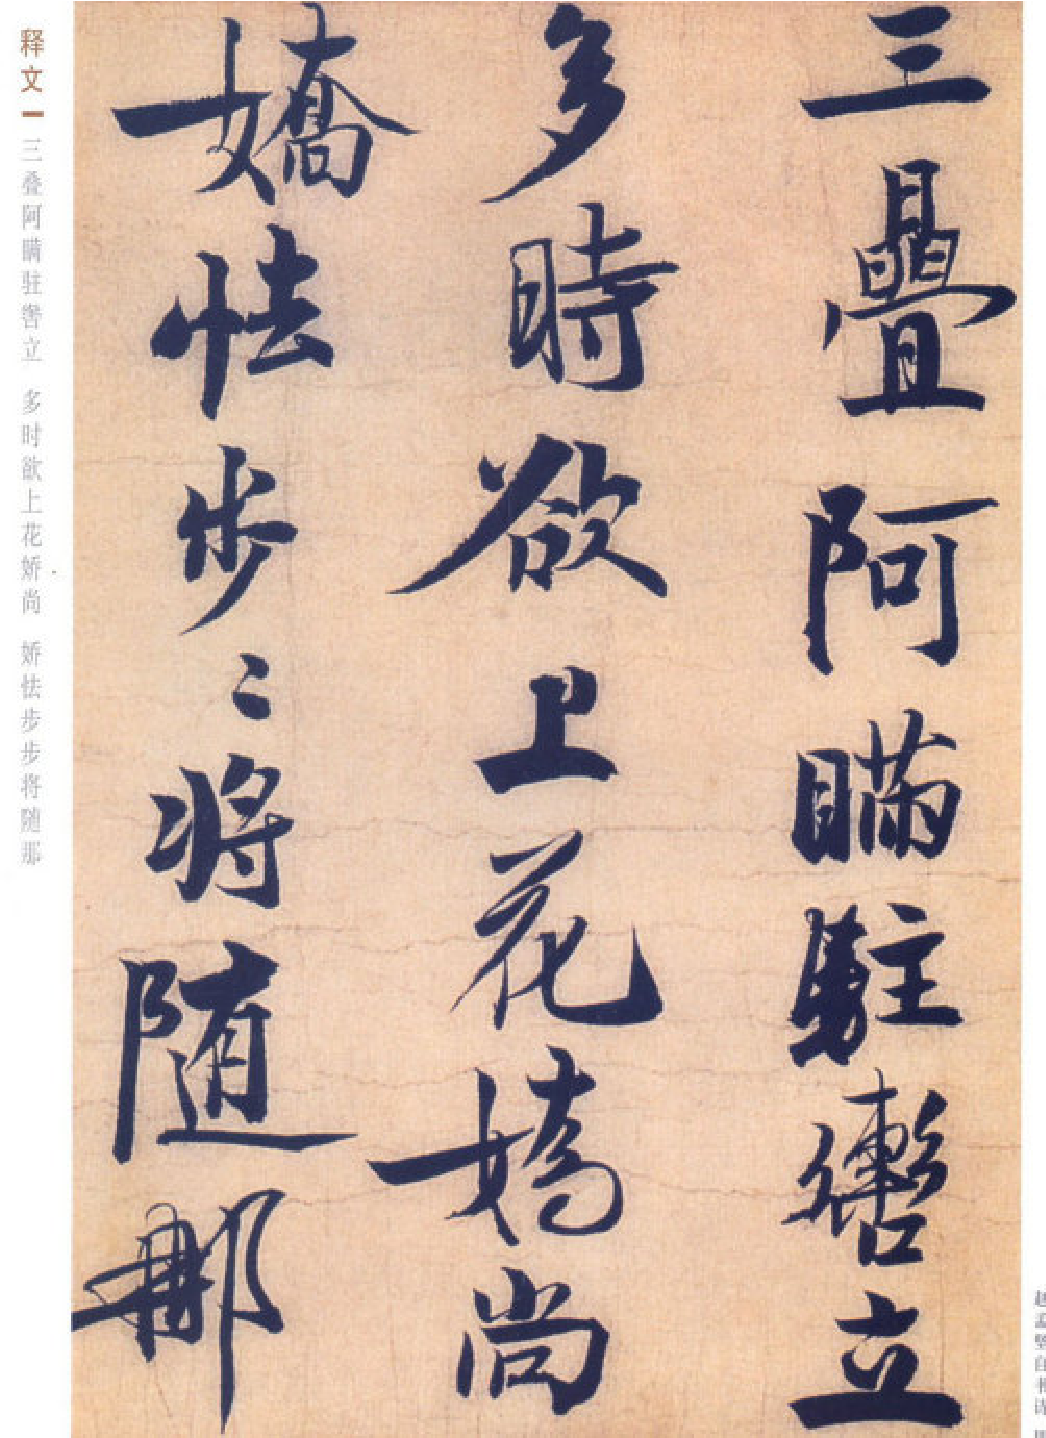 三疊阿瞞駐轡立
多時欲上花嬌尚
嬌怯步〻将随那
释文 三叠阿瞒驻辔立 多时欲上花娇尚 娇怯步步将随那
赵孟坚自书诗